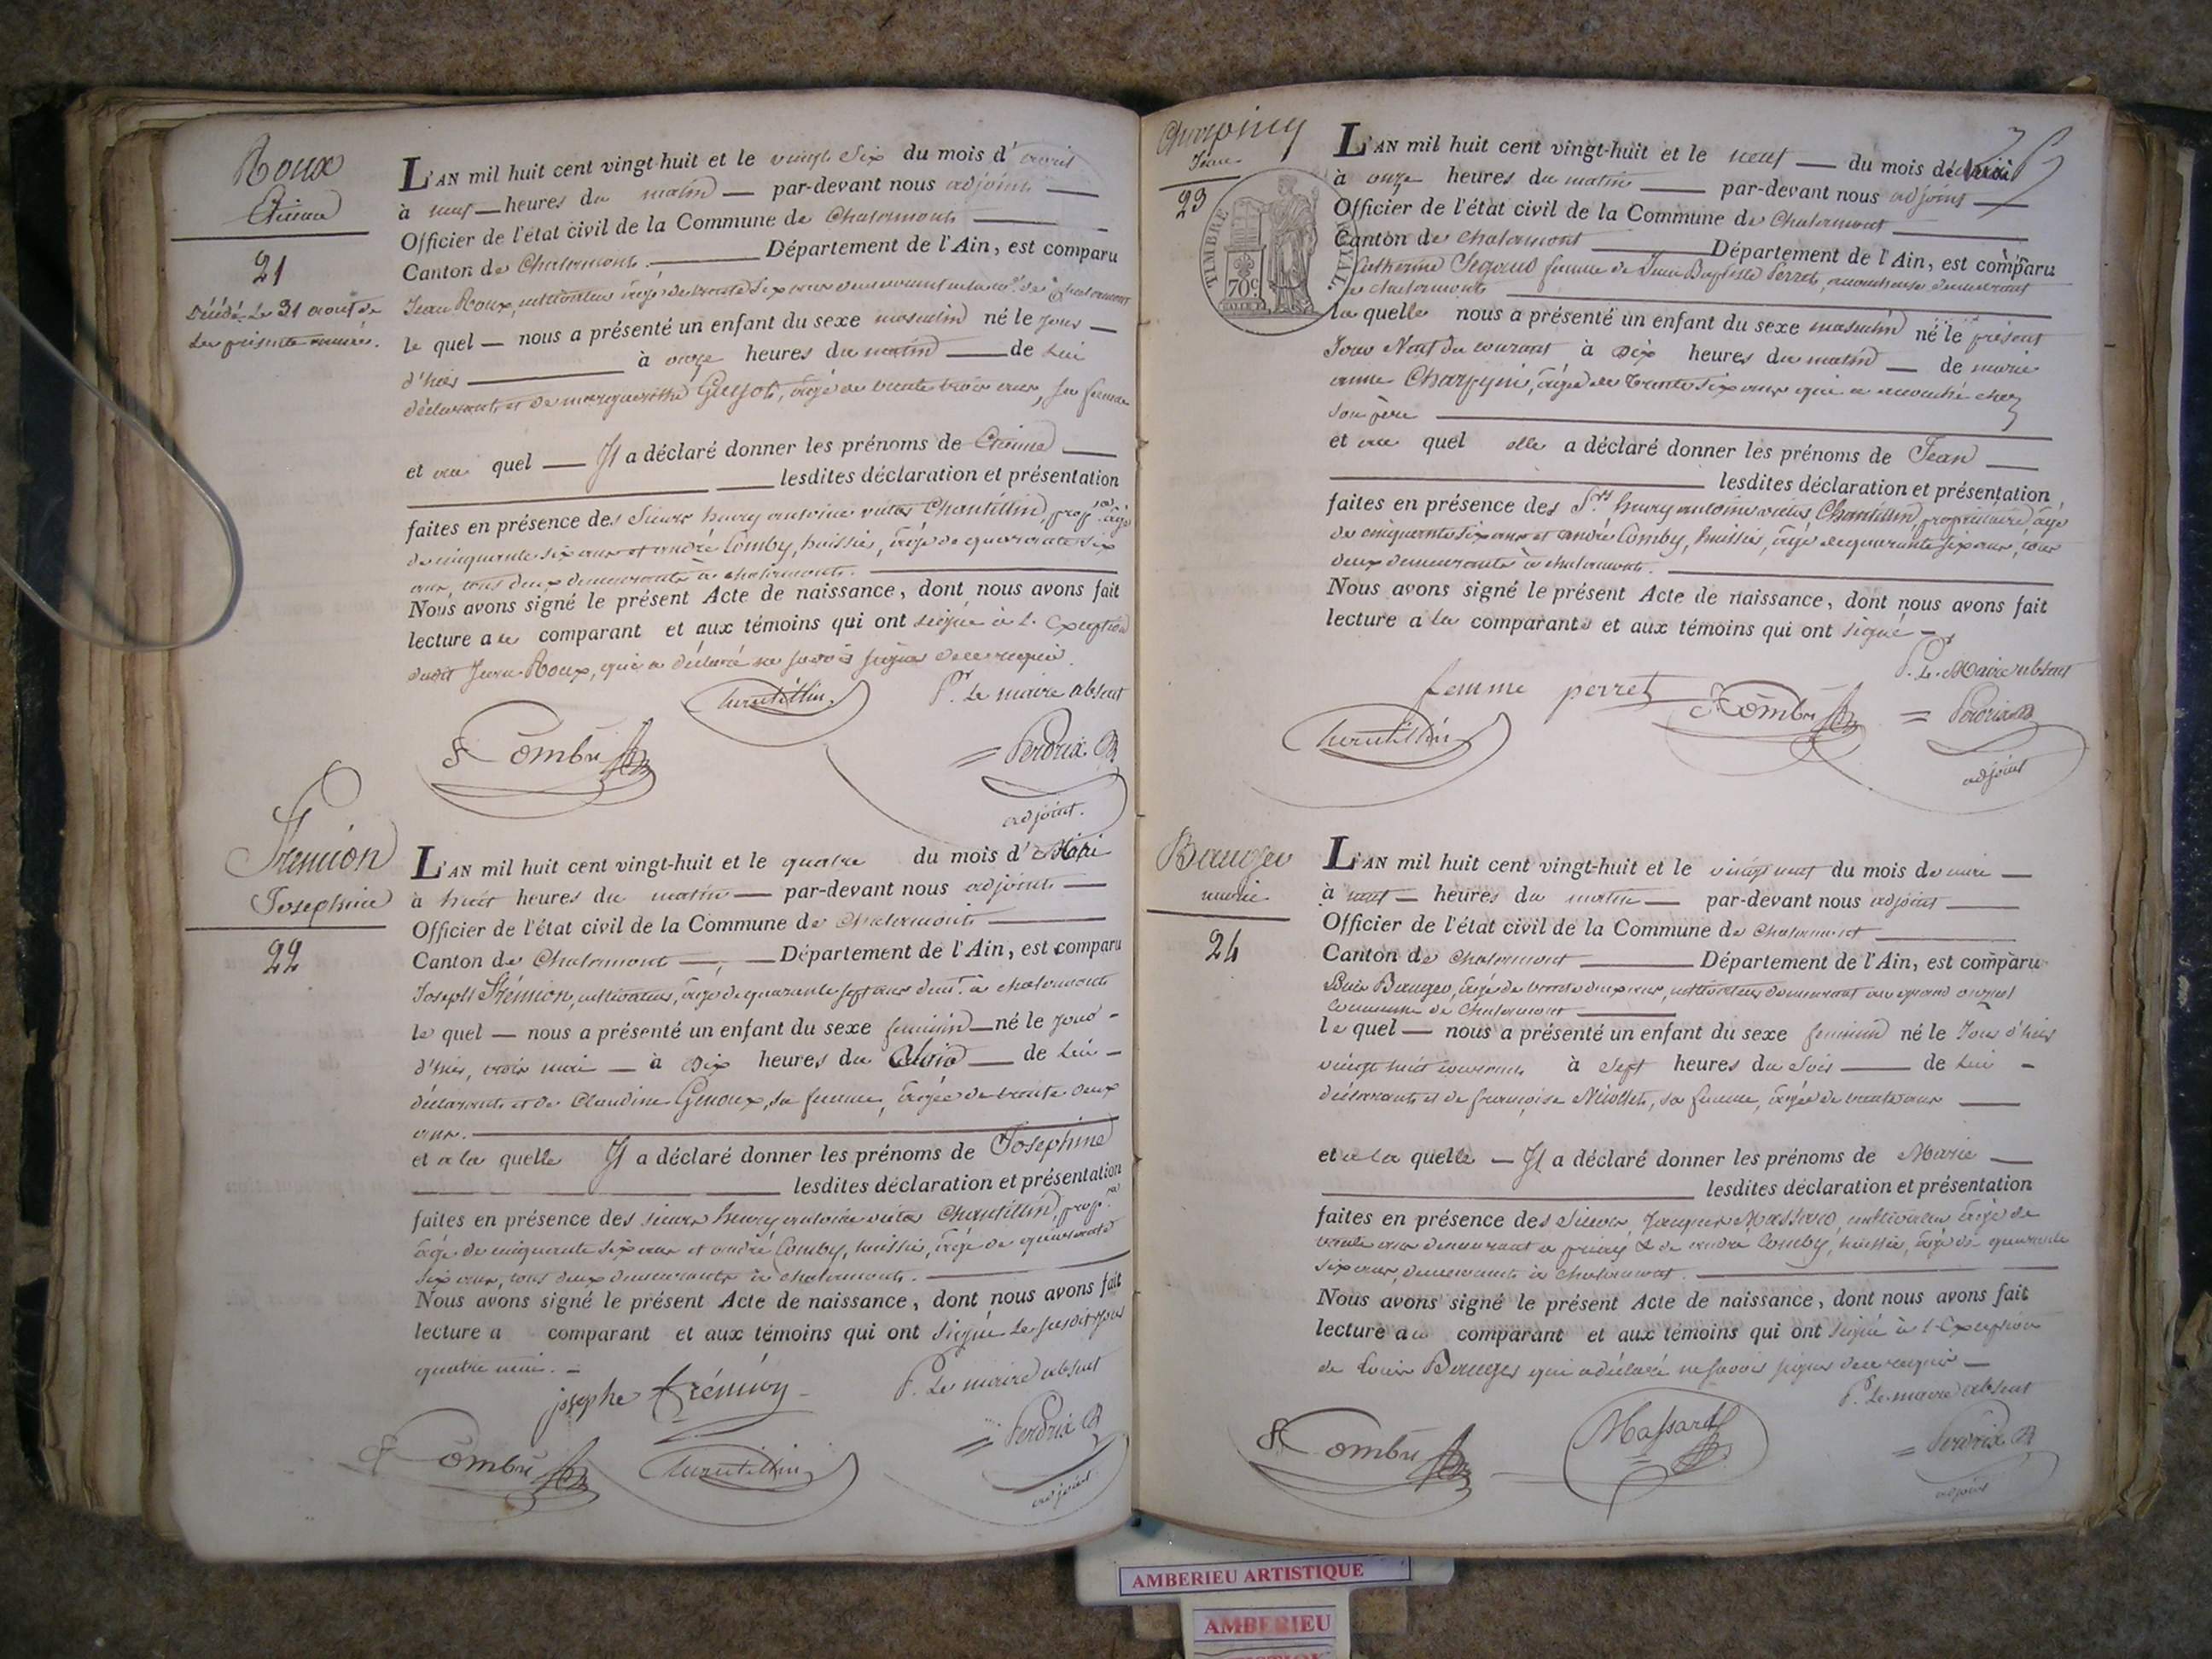 Roux
Etienne
21
Décédé le 31 août de
la présente année.
L'AN mil huit cent vingt-huit et le vingt six du mois d'avril
à neuf heures du matin par-devant nous adjoint
Officier de l'état civil de la Commune de Chalamont
Canton de Chalamont Département de l'Ain, est comparu
Jean Roux, cultivateur âgé de trente six ans demeurant en la de Chalamont
le quel nous a présenté un enfant du sexe masculin né le jour
d'hier à onze heures du matin de lui
déclarant et de marguerithe Guyot, âgé de trente trois ans, sa femme
et au quel Il a déclaré donner les prénoms de Etienne
lesdites déclaration et présentation
faites en présence des sieurs henry antoine Chantillin, âgé
de cinquante six ans et andré Comby, huissier, âgé de quarante six
ans, tous deux demeurants à chalamont.
Nous avons signé le présent Acte de naissance, dont nous avons fait
lecture a le comparant et aux témoins qui ont signé à l'exception
dudit Jean Roux, qui a déclaré ne savoir signer de ce requis.
Chantillin. Pr. Le maire absent
Comby = Perdrix
adjoint.
Trémion
Josephine
22
L'AN mil huit cent vingt-huit et le quatre du mois d' Mai
à huit heures du matin par-devant nous adjoint
Officier de l'état civil de la Commune de Chalamont
Canton de Chalamont Département de l'Ain, est comparu
Joseph Trémion, cultivateur, âgé de quarante sept ans demt. à chalamont
le quel nous a présenté un enfant du sexe feminin né le jour
d'hier, trois mai à dix heures du de lui
déclarant et de Claudine Genoux, sa femme, âgée de trente deux
ans.
et a la quelle Il a déclaré donner les prénoms de Josephine
lesdites déclaration et présentation
faites en présence des sieurs henry antoine Chantillin,
âgé de cinquante six ans et andré Comby, huissier, âgé de quarante
six ans, tous deux demeurants à chalamont.
Nous avons signé le présent Acte de naissance, dont nous avons fait
lecture a comparant et aux témoins qui ont signé le susdit jour
quatre mai.
josephe trémion P. Le maire absent
Comby Chantillin = Perdrix
adjoint
Charpiny
Jean
23
TIMBRE ROYAL.
70c.
L'AN mil huit cent vingt-huit et le neuf du mois de
à onze heures du matin par-devant nous adjoint
Officier de l'état civil de la Commune de Chalamont
Canton de Chalamont Département de l'Ain, est comparu
Catherine femme de Jean Baptiste Perret, accoucheuse demeurant
à chalamont
la quelle nous a présenté un enfant du sexe masculin né le présent
Jour Neuf du courant à dix heures du matin de marie
anne Charpyni, âgée de trente six ans qui a accouché chez
son père
et au quel elle a déclaré donner les prénoms de Jean
lesdites déclaration et présentation
faites en présence des Srs. henry antoine Chantillin, propriétaire, âgé
de cinquante six ans et andré Comby, huissier, âgé de quarante six ans, tous
deux demeurants à chalamont.
Nous avons signé le présent Acte de naissance, dont nous avons fait
lecture a la comparante et aux témoins qui ont signé
Pr. Le Maire absent
femme perret Comby = Perdrix
Chantillin adjoint
Bauger
marie
24
L'AN mil huit cent vingt-huit et le vingt neuf du mois de mai
à neuf heures du matin par-devant nous adjoint
Officier de l'état civil de la Commune de Chalamont
Canton de Chalamont Département de l'Ain, est comparu
Louis Bauger, âgé de trente deux ans, cultivateur demeurant au grand
Commune de Chalamont
le quel nous a présenté un enfant du sexe feminin né le Jour d'hier
vingt huit courant à Sept heures du Soir de lui
déclarant et de françoise Miollet, sa femme, âgée de trente ans
et a la quelle Il a déclaré donner les prénoms de Marie
lesdites déclaration et présentation
faites en présence des Sieurs Jacques Massard, cultivateur âgé de
trente ans demeurant a & de andré Comby, huissier, âgé de quarante
six ans, demeurant à chalamont.
Nous avons signé le présent Acte de naissance, dont nous avons fait
lecture au comparant et aux témoins qui ont signé à l'Exception
de Louis Bauger qui a déclaré ne savoir signer de ce requis
Pr. Le maire absent
Comby Massard = Perdrix
adjoint
AMBERIEU ARTISTIQUE
AMBERIEU